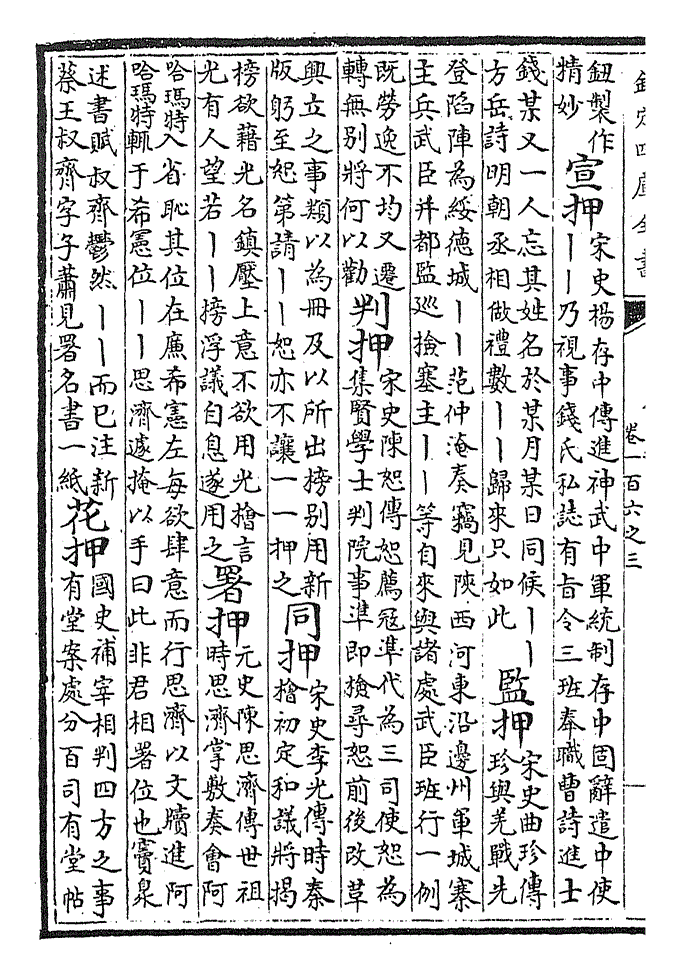 欽定四庫全書
卷一百六之三
鈕製作
精妙
宣押
宋史楊存中傳進神武中軍統制存中固辭遣中使
丨丨乃視事錢氏私誌有旨令三班奉職曹詩進士
錢某又一人忘其姓名於某月某日同候丨丨
方岳詩明朝丞相做禮數丨丨歸來只如此
監押
宋史曲珍傳
珍與羌戰先
登陷陣為綏德城丨丨范仲淹奏竊見陝西河東沿邊州軍城寨
主兵武臣并都監巡撿寨主丨丨等自來與諸處武臣班行一例
既勞逸不均又遷
轉無别將何以勸
判押
宋史陳恕傳恕薦冦準代為三司使恕為
集賢學士判院事準即撿尋恕前後改草
興立之事類以為冊及以所出榜别用新
版躬至恕第請丨丨恕亦不讓一一押之
同押
宋史李光傳時秦
檜初定和議將揭
榜欲藉光名鎮壓上意不欲用光檜言
光有人望若丨丨搒浮議自息遂用之
署押
元史陳思濟傳世祖
時思濟掌敷奏會阿
哈瑪特入省恥其位在廉希憲左每欲肆意而行思濟以文牘進阿
哈瑪特輒于希憲位丨丨思濟遽掩以手曰此非君相署位也竇泉
述書賦叔齊鬱然丨丨而已注新
蔡王叔齊字子蕭見署名書一紙
花押
國史補宰相判四方之事
有堂案處分百司有堂帖